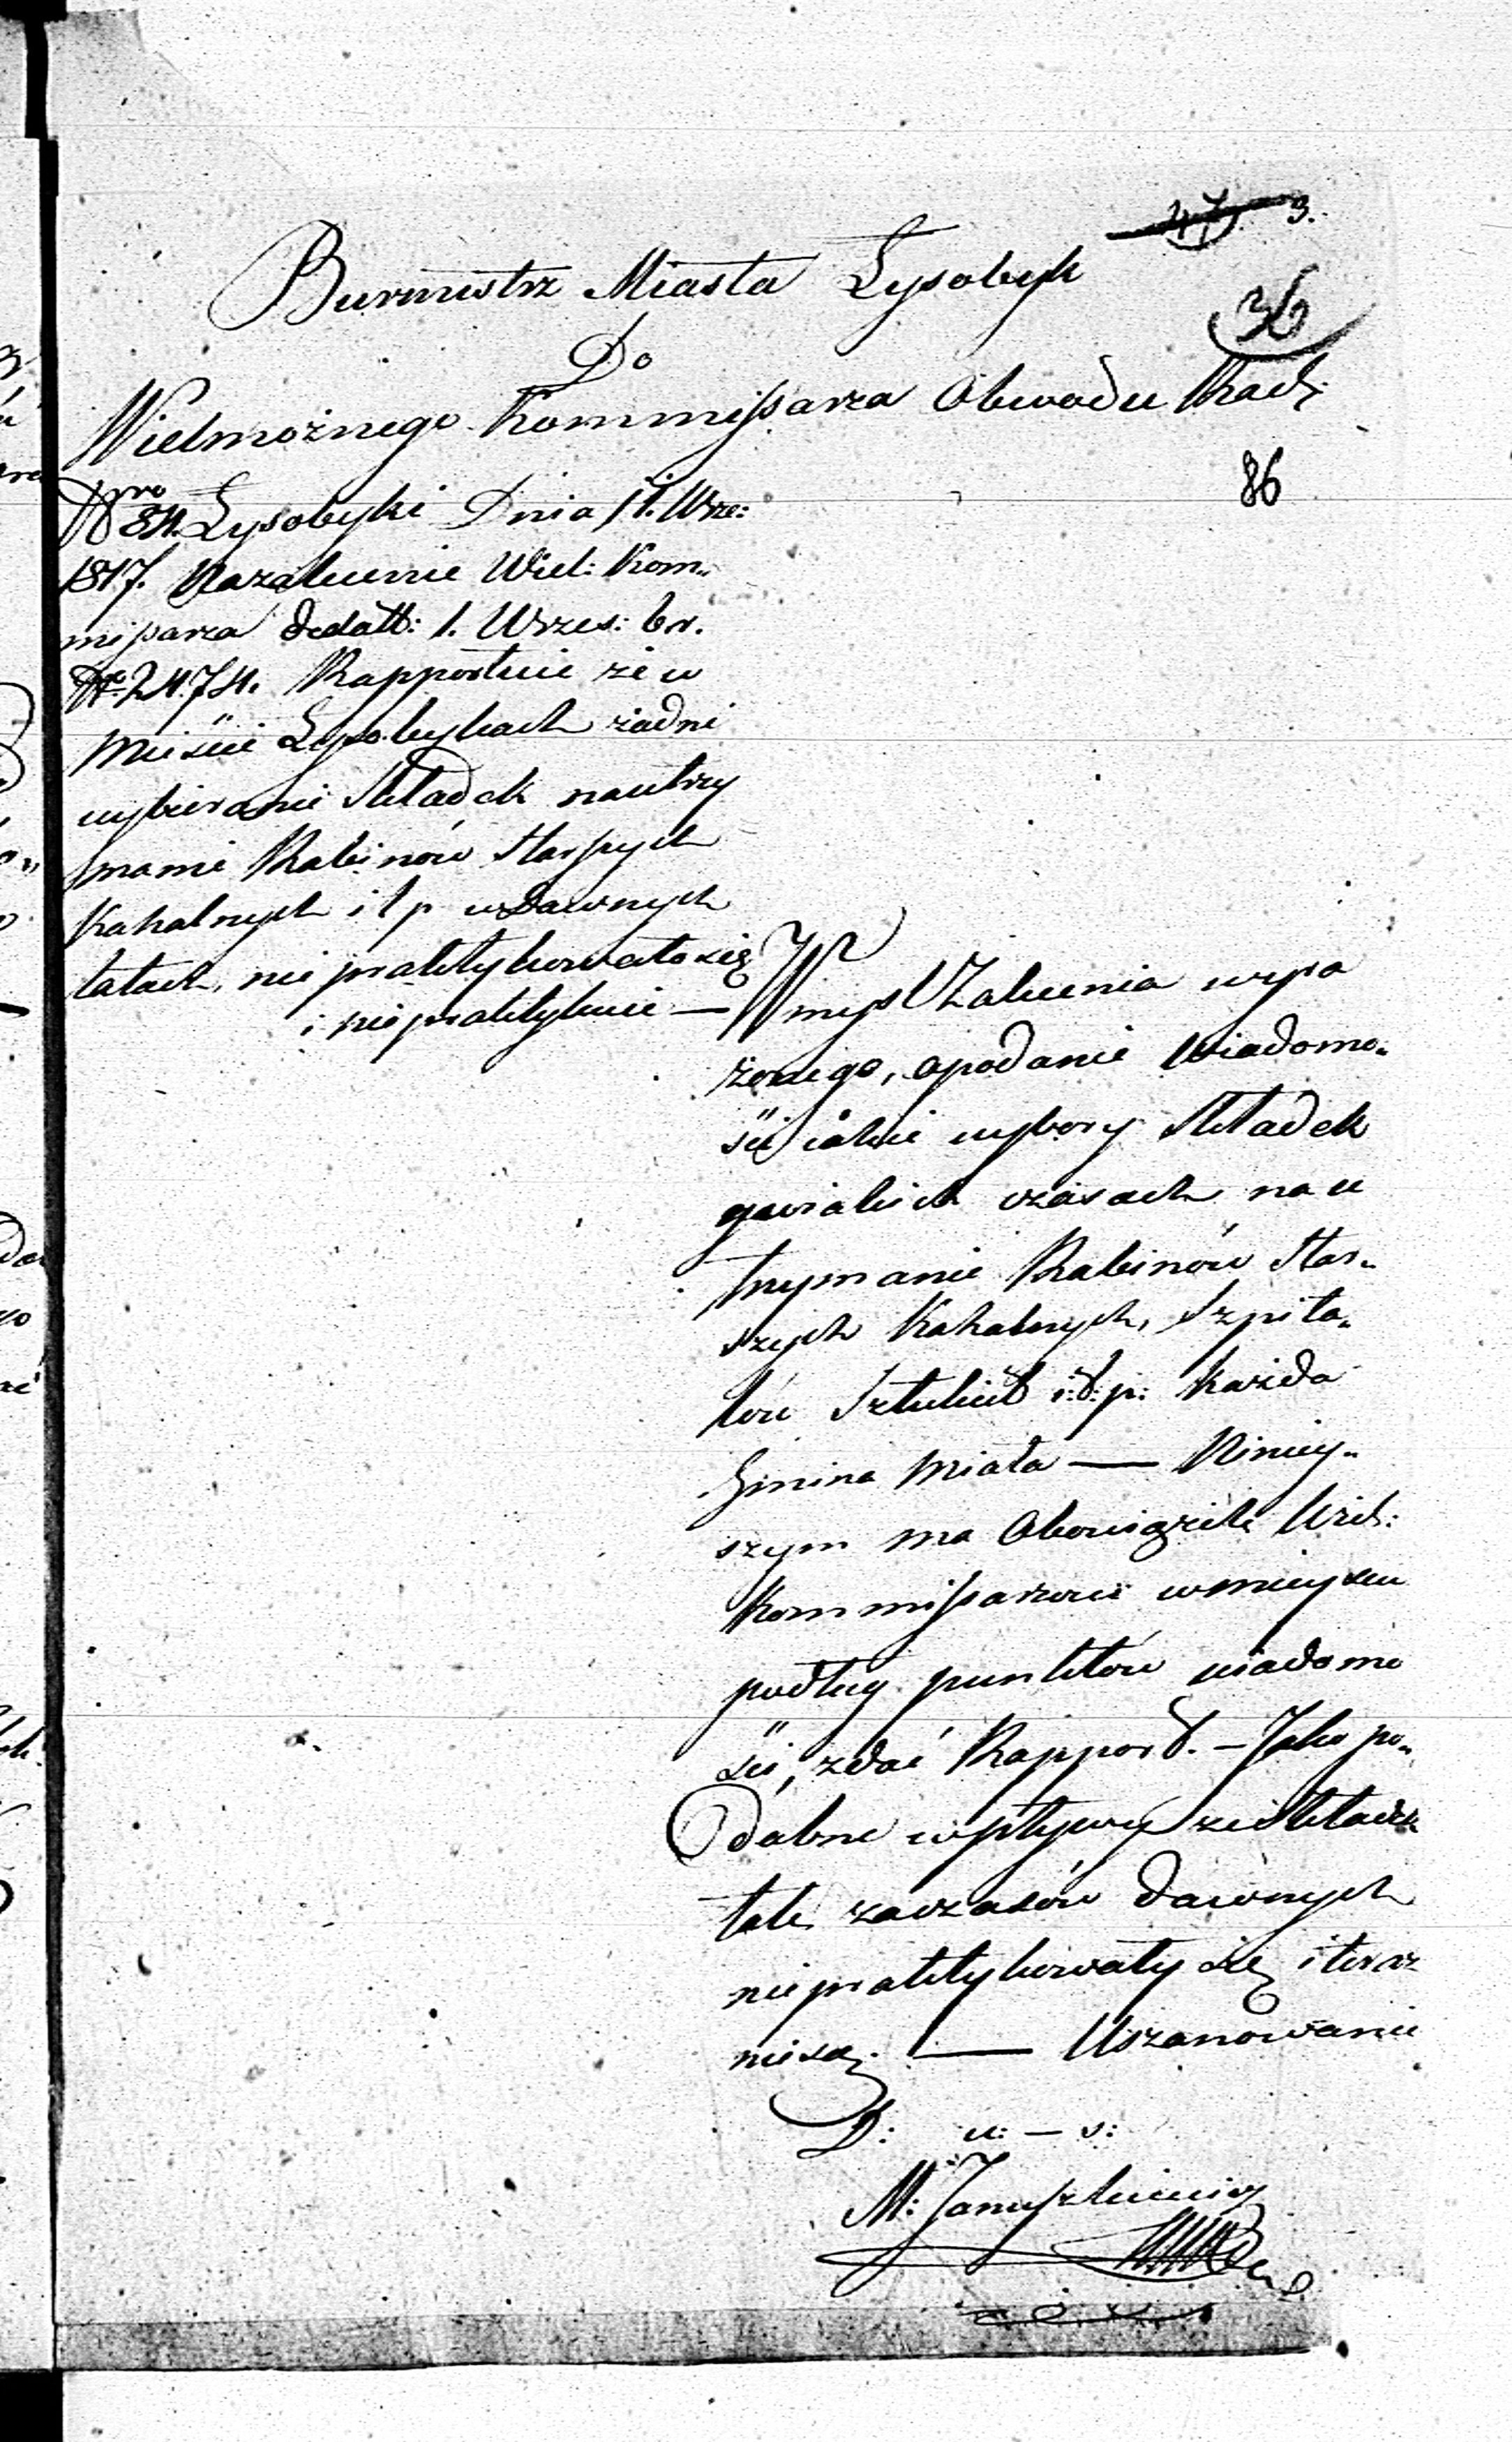 47. 3.
Burmistrz Miasta Łysobyk
36
Do
Wielmożnego Kommissarza Obwodu Radz:
86
Nro 84. Łysobyki Dnia 11. Wrze:
1817. Nazalecenie Wiel: Kom„
missarza dedatt: 1. Wrzes: br.
Nro 2474. Rapportuie że w
Mieście Łysobykach żadne
wybieranie Składek nautrzy
manie Rabinów Starszych
Kahalnych i t p wdawnych
latach, nie praktykowało się
i nie praktykuie —
Wmysl Zalecenia wyra
żonego, opodanie Wiadomo„
ści iakie wybory Składek
gwiakich czasach na u
trzymanie Rabinów Star„
szych Kahalnych, Szpita„
lów Szkulicet i: t: p: każda
Gmina miała — Niniey„
szym ma Obowiązek Wiel:
Kommissarzowi wmieyscu
podług punktów wiadomo
ści, zdać Rapport. — Jako po„
dobne wpływy ze Składek
tak zaczasów dawnych
niepraktykowały się iteraz
niesą. — Uszanowanie
D: u: — s:
M: Januszkiewicz